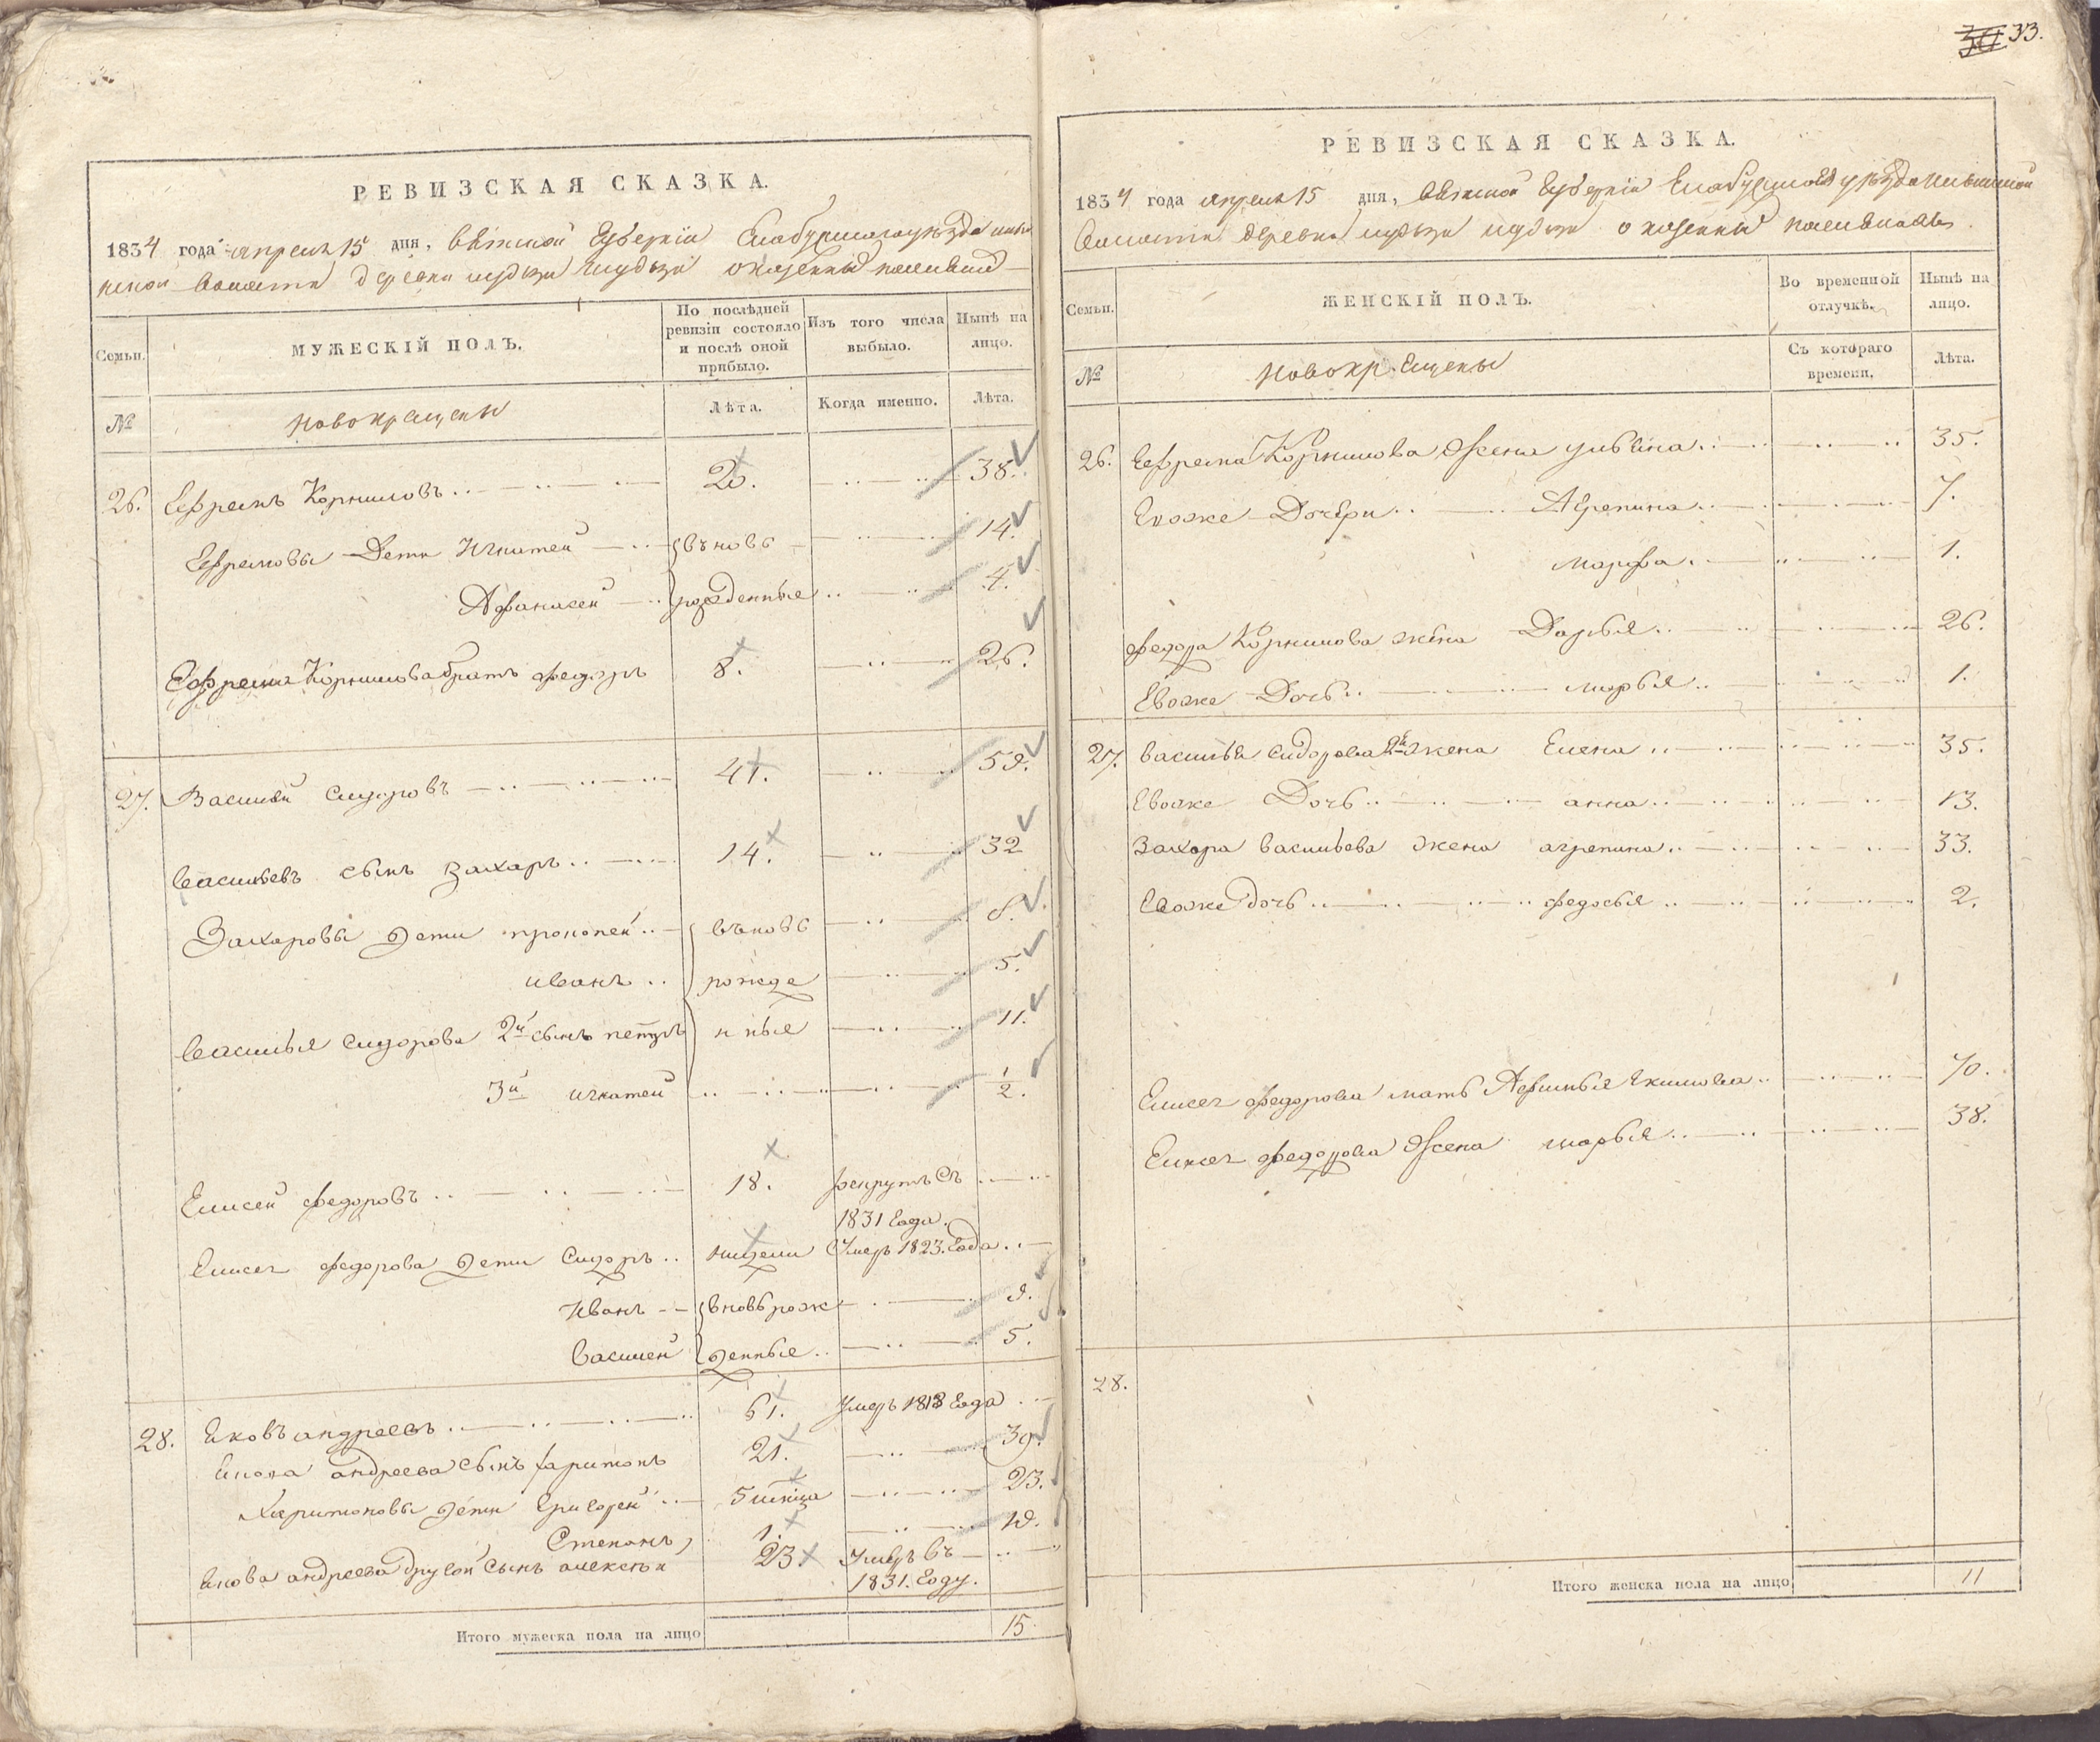 33.
РЕВИЗСКАЯ СКАЗКА.
1834 года апреля 15 дня, Вятской Губернiи Елабужского уѣзда
волости деревни о казенныхъ поселянахъ
Семьи. МУЖЕСКІЙ ПОЛЪ. По послѣдней ревизіи состояло и послѣ оной прибыло. Изъ того числа выбыло. Нынѣ на лицо.
№ новокрещены Лѣта. Когда именно. Лѣта.
26. Ефремъ Корниловъ 20. 38.
Ефремовы Дети Игнатей въновь 14.
Афанасей рожденные 4.
Ефрема Корнилова братъ федоръ 8. 26.
27. Василей Сидоровъ 41. 59.
Васильевъ сынъ Захаръ 14. 32
Захаровы дети прокопей въновь 8.
иванъ рожде 5.
Василья Сидорова 2й сынъ петръ нные 11.
3й игнатей 1/2.
Елисей федоровъ 18. рекрутъ съ
1831 Года.
Елисея федорова дети Сидоръ недели Умеръ 1823. Года
Иванъ вновь рож 9.
Василей денные 5.
28. Яковъ андреевъ 61. Умеръ 1818 Года
Якова андреева сынъ харитонъ 21. 39.
Харитоновы дети Григорей 5 23.
Степанъ 1. 19.
Якова андреева другой сынъ алексѣй 23. Умеръ въ
1831. Году.
Итого мужеска пола на лицо 15
РЕВИЗСКАЯ СКАЗКА.
1834 года апреля 15 дня, Вятской Губернiи Елабужского уѣзда
Волости деревни о казенныхъ поселянахъ.
Семьи. ЖЕНСКІЙ ПОЛЪ. Во временной отлучкѣ. Нынѣ на лицо.
№ новокрещены Съ котораго времени. Лѣта.
26. Ефрема Корнилова Жена ульяна 35.
Евоже Дочери Агрепина 7.
марфа 1.
федора Корнилова жена Дарья 26.
Евоже Дочь марья 1.
27. Василья Сидорова 2я жена Елена 35.
Евоже Дочь анна 13.
Захара Васильева жена агрепина 33.
Евоже дочь федосья 2.
Елисея федорова мать Афимья Екимова 70.
Елисея федорова Жена марья 38.
28.
Итого женска пола на лицо 11